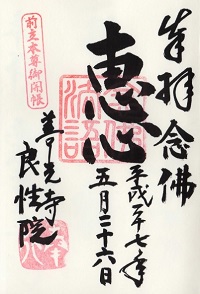 奉拝 念佛
平成二十七年
五月二十六日
恵心
前立本尊御開帳
善光寺
良性院